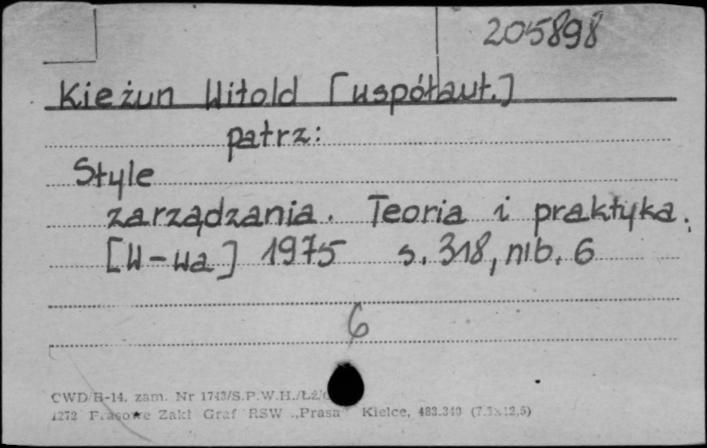 205898
Kieżun Witold [współaut.]
patrz:
Style
zarządzania. Teoria i praktyka.
[W-wa] 1975 s. 318, nlb. 6
6
CWD/H-14. zam. Nr 1743/S.P.W.H./Łż/
1272 Prasowe Zakł Graf RSW „Prasa" Kielce, 483.340 (7.5x12,5)